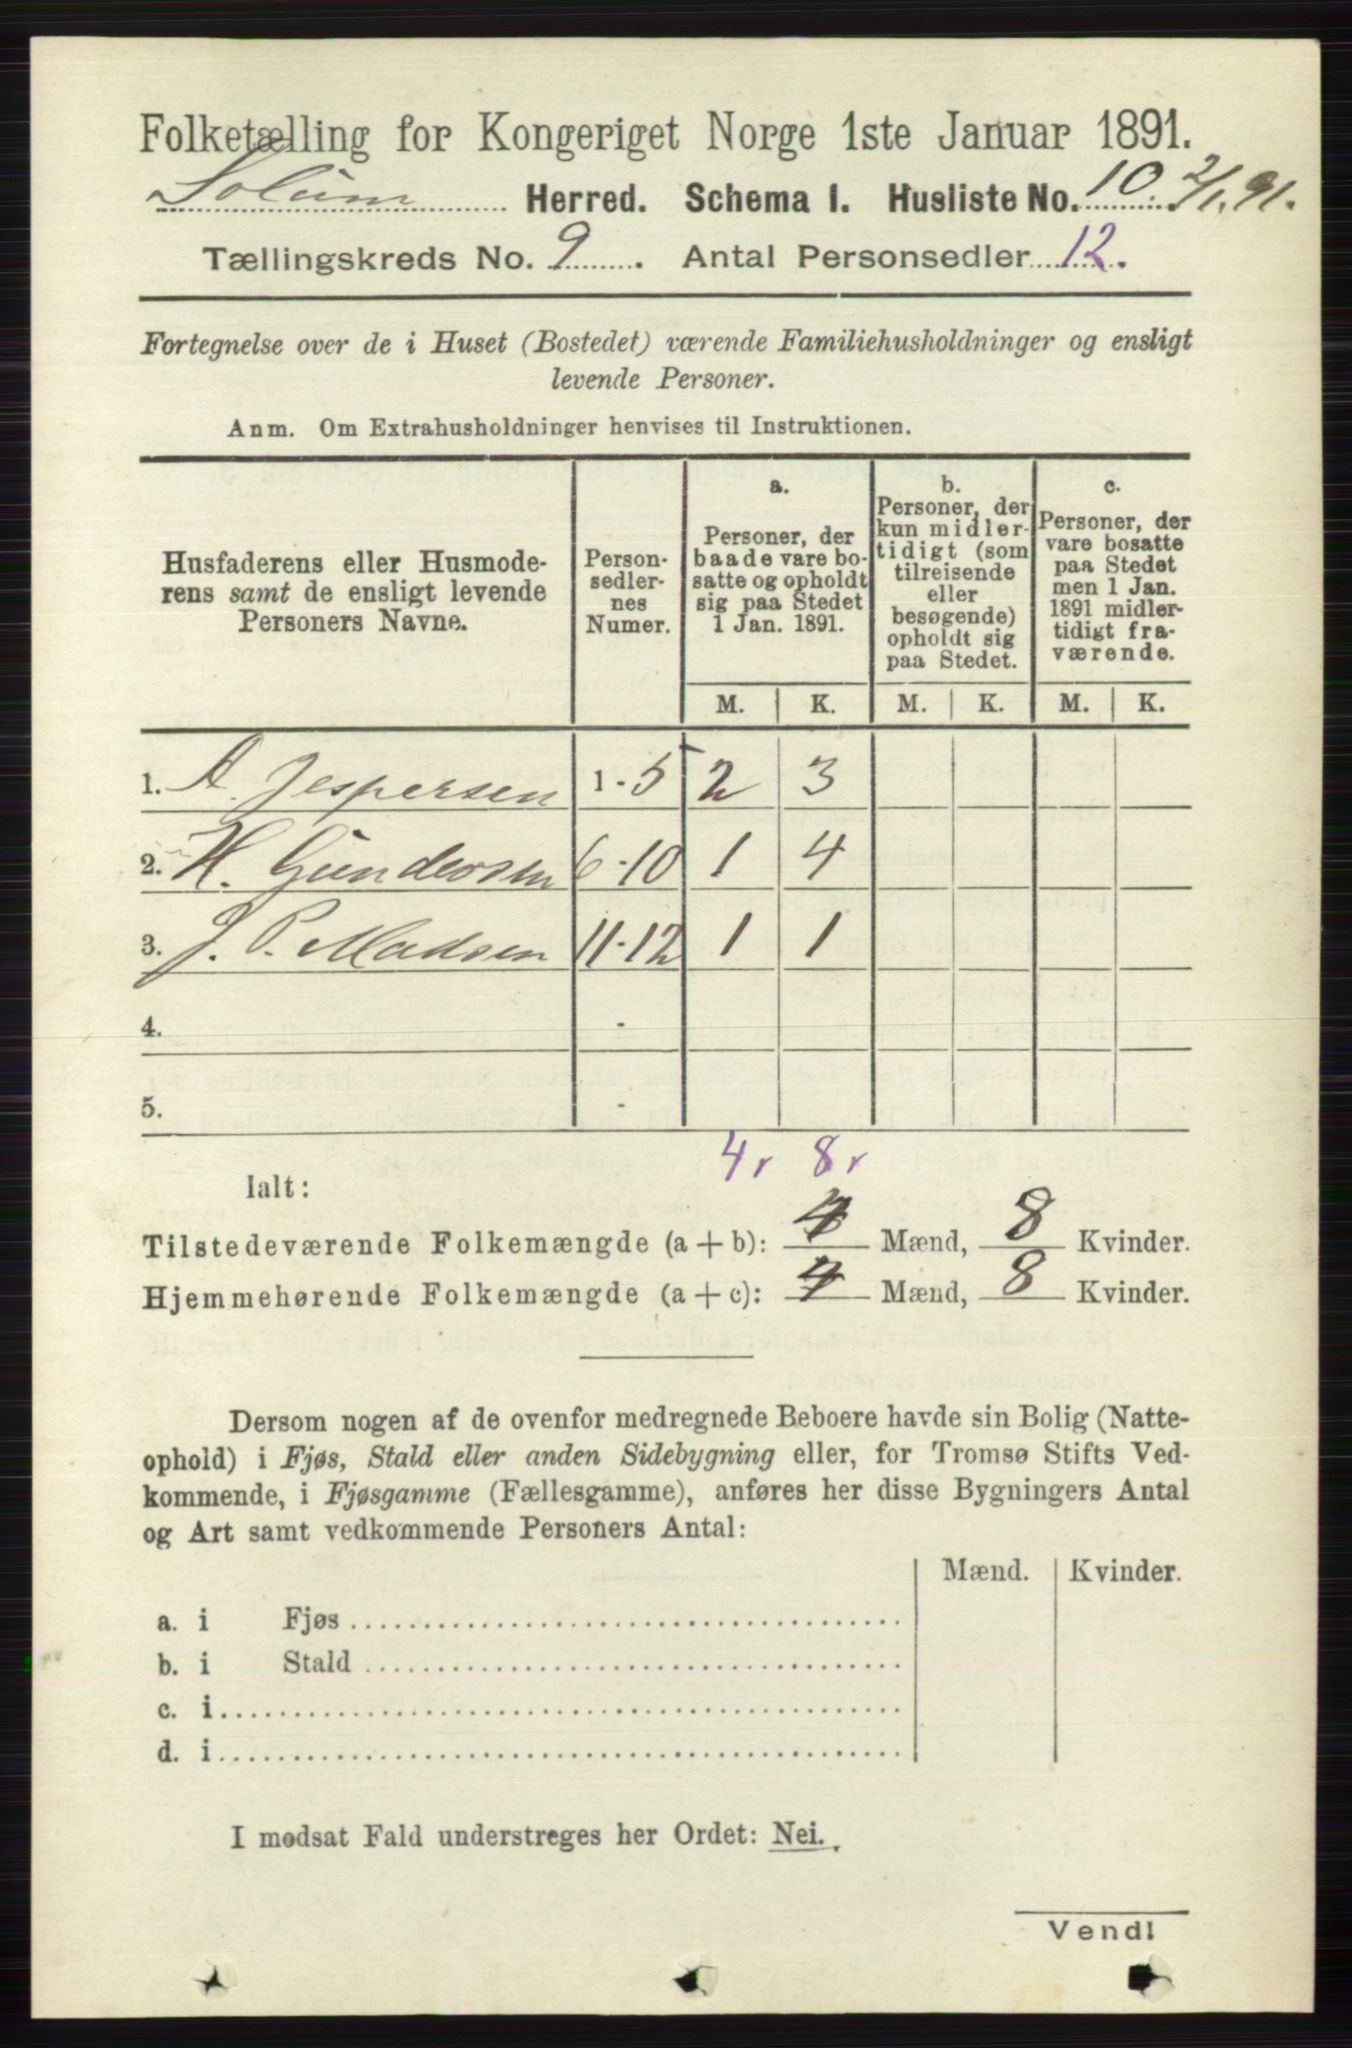 Folketælling for Kongeriget Norge 1ste Januar 1891.
Solum Herred. Schema 1. Husliste No. 10. 2/1. 91.
Tællingskreds No. 9. Antal Personsedler 12.
Fortegnelse over de i Huset (Bostedet) værende Familiehusholdninger og ensligt
levende Personer.
Anm. Om Extrahusholdninger henvises til Instruktionen.
Husfaderens eller Husmode-
rens samt de ensligt levende
Personers Navne.
Person-
sedler-
nes
Numer.
a.
Personer, der
baade vare bo-
satte og opholdt
sig paa Stedet
1 Jan. 1891.
b.
Personer, der
kun midler-
tidigt (som
tilreisende
eller
besøgende)
opholdt sig
paa Stedet.
c.
Personer, der
vare bosatte
paa Stedet
men 1 Jan.
1891 midler-
tidigt fra-
værende.
M. K. M. K. M. K.
1. A. Jespersen 1-5 2 3
2. H. Gundersen 6-10 1 4
3. J. P. Madsen 11-12 1 1
4. -
5. -
4 r 8 r
Ialt:
Tilstedeværende Folkemængde (a + b): 4 Mænd, 8 Kvinder.
Hjemmehørende Folkemængde (a + c): 4 Mænd, 8 Kvinder.
Dersom nogen af de ovenfor medregnede Beboere havde sin Bolig (Natte-
ophold) i Fjøs, Stald eller anden Sidebygning eller, for Tromsø Stifts Ved-
kommende, i Fjøsgamme (Fællesgamme), anføres her disse Bygningers Antal
og Art samt vedkommende Personers Antal:
Mænd. Kvinder.
a. i Fjøs
b. i Stald
c. i
d. i
I modsat Fald understreges her Ordet: Nei.
Vend!